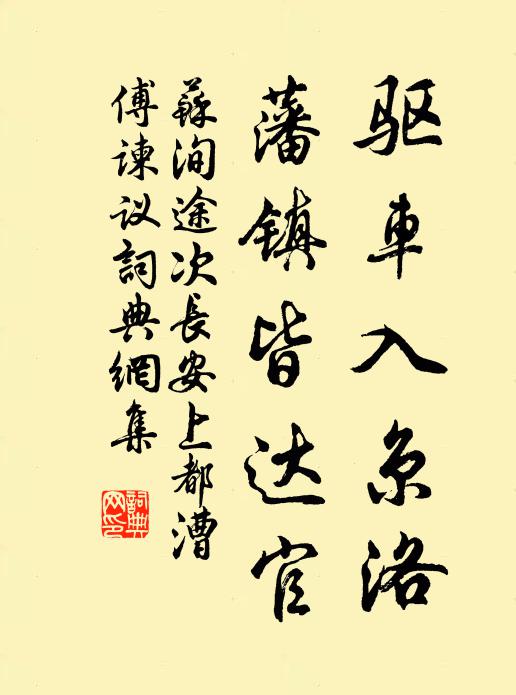 驱車入京洛
藩镇皆达官
蘇洵途次长安上都漕
傅谏议詞典網集
詞典网印